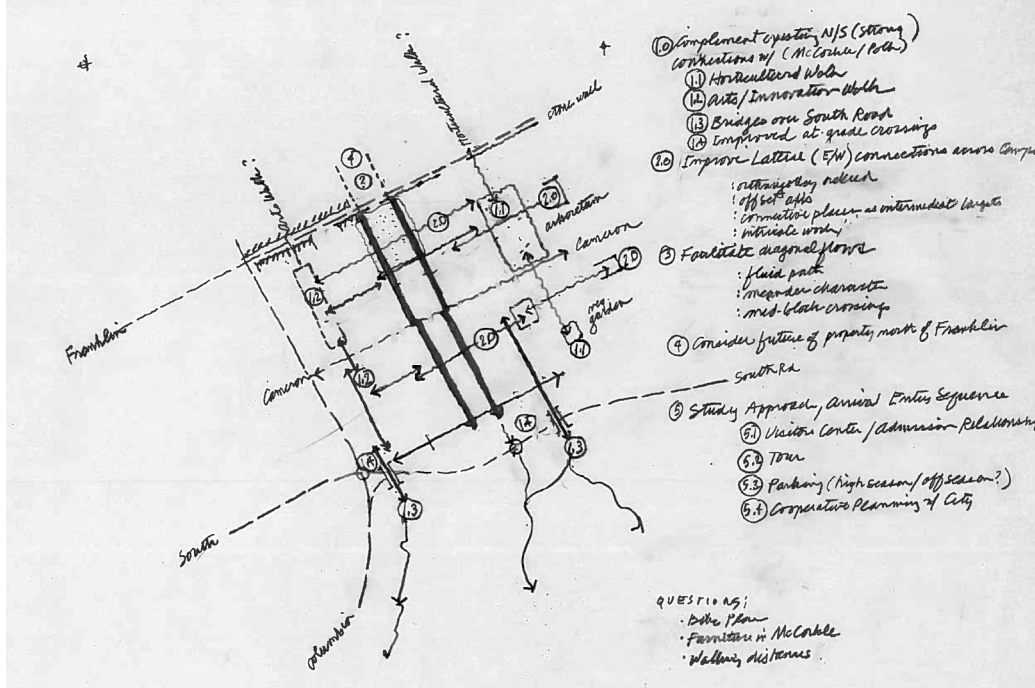 1.0 Complement existing N/S (strong)
connections w/ (McCorkle/Polk)
1.1 Horticultural Walk
1.2 Arts/Innovation Walk
1.3 Bridges over South Road
1.4 Improved at-grade crossings
2.0 Improve Lateral (E/W) connections across Camp
: orthogonally ordered
: offset axis
: connective places as intermediate targets
: intricate work
3 Facilitate diagonal flows
: fluid path
: meander character
: mid-block crossings
4 Consider future of property north of Franklin
5 Study Approach, Arrival Entry Sequence
5.1 Visitors Center/Admission Relationshi
5.2 Tour
5.3 Parking (high season/off season?)
5.4 Cooperative Planning w/ City
QUESTIONS:
· Bike Plan
· Furniture in McCorkle
· Walking distances
Horticultural Walk
stone wall
4
?
2.0
1.1
2.0
arboretum
Cameron
2.0
1.2
Franklin
garden
2.0
1.1
Cameron
1.2
South Rd
1.4
1.4
1.3
1.3
South
Columbia